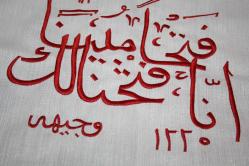 انّا فتحنا لك
فتحا مبينا
وجيهه ١٢٢٥